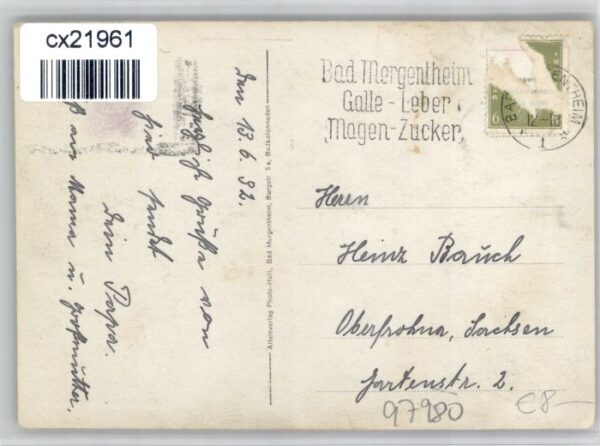 cx21961
Bad Mergentheim
Galle - Leber
Magen-Zucker
6
12-
1
den 13.6.32.
Herzliche Grüße von
hier sendet
dein Papa.
aus Mama u. Großmutter.
Alleinverlag Photo-Holl, Bad Mergentheim, Burgstr. 5a, Badkolonnaden
Herrn
Heinz Bauch
Oberfrohna, Sachsen
Gartenstr. 2.
97980
€8-